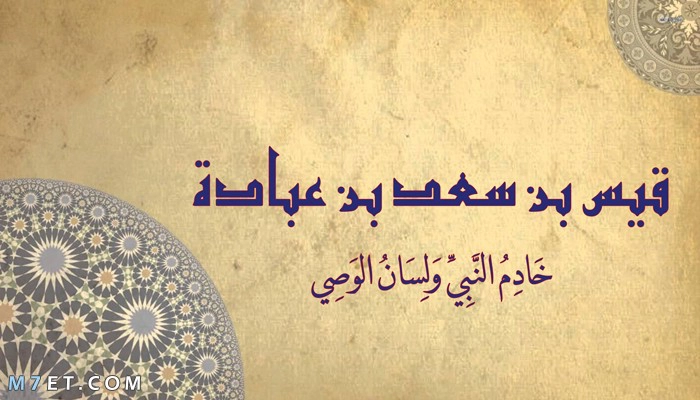 قيس بن سعد بن عبادة
خَادِمُ النَّبِيِّ وَلِسَانُ الوَصِي
M7ET.COM